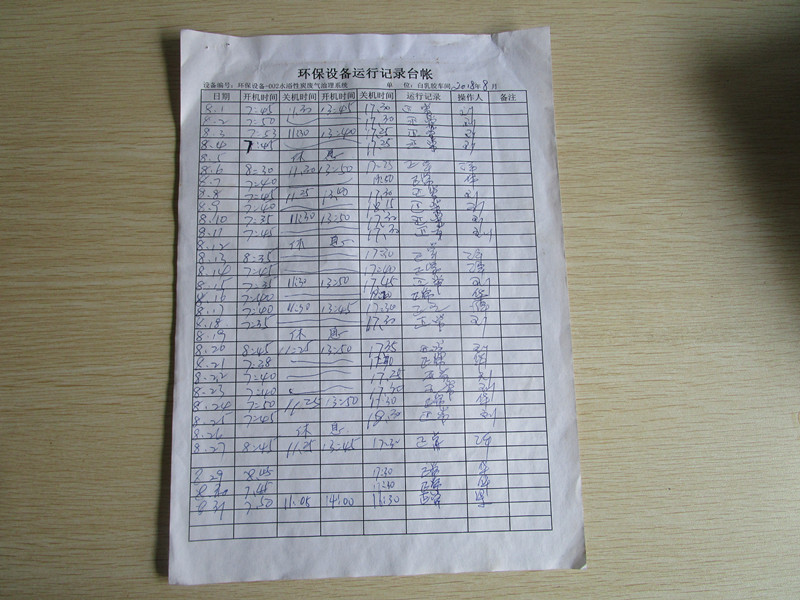 环保设备运行记录台帐
设备编号：环保设备-002水浴性炭废气治理系统 单 位：白乳胶车间 2018年8月
日期 开机时间 关机时间 开机时间 关机时间 运行记录 操作人 备注
8.1 7:45 11.30 13:45 17.30 正常 刘
8.2 7:50 17.30 正常
8.3 7:53 11:30 13:40 17.25 正常 刘
8.4 7:45 17.25 正常 刘
8.5 休 息
8.6 8:30 11.30 13:50
8.7 7:40 正常
8.8 7:45 11.25 17.30 正常 刘
8.9 7:40 18.15 正常 刘
8.10 7:35 11:30 13:50 17.30 正常 刘
8.11 7:45 17.30 正常 刘
8.12 休 息
8.13 8:35 17:30 正常
8.14 7:45 17:00 正常
8.15 7:35 11:30 13:50 17.45 正常 刘
8.16 7:40 正常
8.17 7:40 11.30 13:45 17:30
8.18 7:35 17.30 正常 刘
8.19 休 息
8.20 8:45 11:25 13:50 17.35 正常 刘
8.21 7:38 正常
8.22 7:40 17.25 正常 刘
8.23 7:40 17.30 正常 刘
8.24 7:50 11.25 13:50 正常
8.25 7:45 18.30 正常 刘
8.26 休 息
8.27 8:45 11.25 13:45 17:30 正常
8.29 8:45 17:30 正常
8.30 7.45 正常
8.31 7:50 11:05 14:00 正常